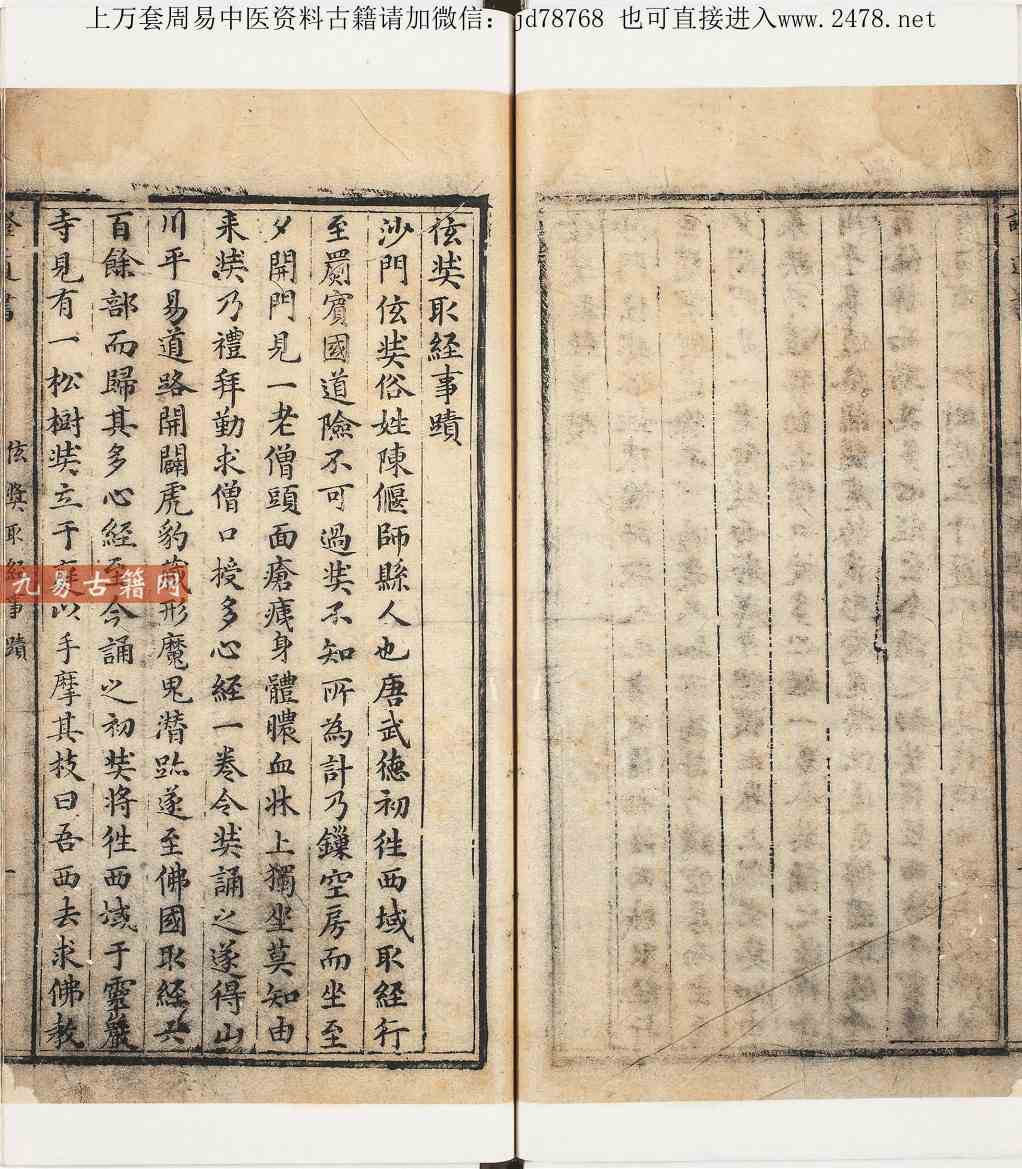 上万套周易中医资料古籍请加微信：jd78768 也可直接进入www.2478.net
伭奘取経事蹟
沙門伭奘俗姓陳偃師縣人也唐武徳初徃西域取経行
至罽賔國道險不可過奘不知所為計乃鏁空房而坐至
夕開門見一老僧頭面瘡痍身體膿血牀上獨坐莫知由
来奘乃禮拜勤求僧口授多心経一卷令奘誦之遂得山
川平易道路開闢虎豹藏形魔鬼潜跡遂至佛國取経六
百餘部而歸其多心經至今誦之初奘将徃西域于靈巖
寺見有一松樹奘立于庭以手摩其枝曰吾西去求佛教
伭奘取経事蹟
一
九易古籍网